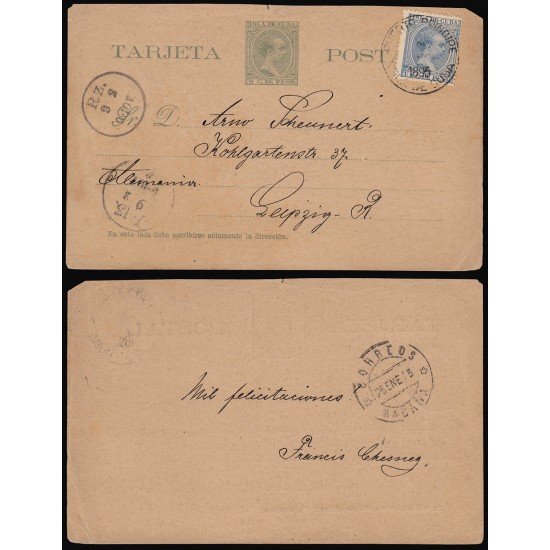 ISLA DE CUBA
TARJETA POSTAL
D. Arno Scheunert
Kohlgartenstr 37
Alemania
Leipzig-R.
En este lado debe escribirse solamente la dirección.
CORREOS
26 ENE 96
HABANA
Mil felicitaciones
Francis Chesney